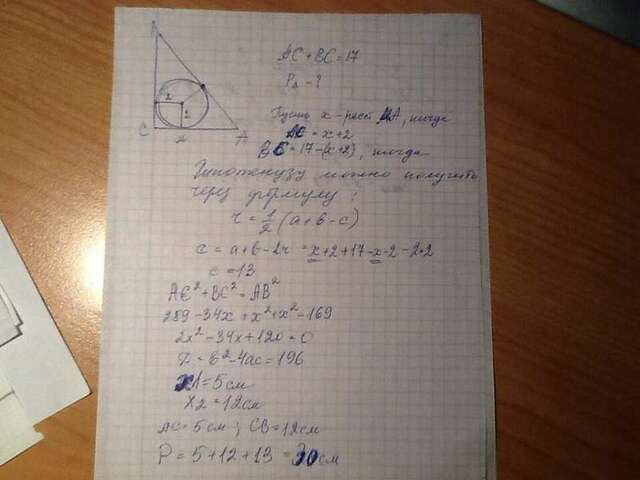 B
2
2
C
A
AC + BC = 17
P△ - ?
Пусть x - расст MA, тогда
AC = x + 2
BC = 17 - (x + 2), тогда
Гипотенузу можно получить
через формулу:
r = 1/2 (a + b - c)
c = a + b - 2r = x + 2 + 17 - x - 2 - 2·2
c = 13
AC² + BC² = AB²
289 - 34x + x² + x² - 169
2x² - 34x + 120 = 0
D = b² - 4ac = 196
x1 = 5 см
x2 = 12 см
AC = 5 см; CB = 12 см
P = 5 + 12 + 13 = 30 см